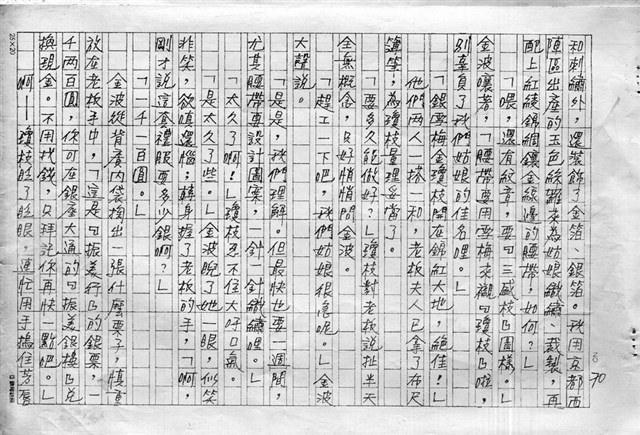 和刺繡外,還裝飾了金箔、銀箔。我用京都西
陣區出產的玉色絞羅來為姑娘織繡、裁製,再
配上紅綾錦綢鑲金線邊的腰帶,如何?」
「喂,還有紋章,要『三威枝』圖樣。」
金波嚷著,「腰帶要用雪梅來襯『瓊枝』啦,
別辜負了我們姑娘的佳名哩。」
「銀雪梅金瓊枝開在錦紅大地,絕佳!」
他們兩人一搭一和,老板夫人已拿了布尺
簿等,為瓊枝量理妥當了。
「要多久能做好?」瓊枝對老板說扯半天
全無概念,只好悄悄問金波。
「趕工一下吧,我們姑娘很急呢。」金波
大聲說。
「是是,我們理解。但最快也要一週間,
尤其腰帶專設計圖案,一針一針織繡哩。」
「太久了啊!」瓊枝忍不住大呼口氣。
「是太久了些。」金波睨了她一眼,似笑
非笑,欲嗔還惱;轉身握了老板的手,「啊,
剛才說這套禮服要多少銀啊?」
「一千一百圓。」
金波從背廣內袋掏出一張什麼票子,慎重
放在老板手中,「這是『振義行』的銀票,一
千兩百圓,你可在銀座大通的『振義銀樓』兌
換現金。不用找錢,只拜託你再快一點吧。」
啊——瓊枝眨了眨眼,連忙用手搗住芳唇
70
25×20